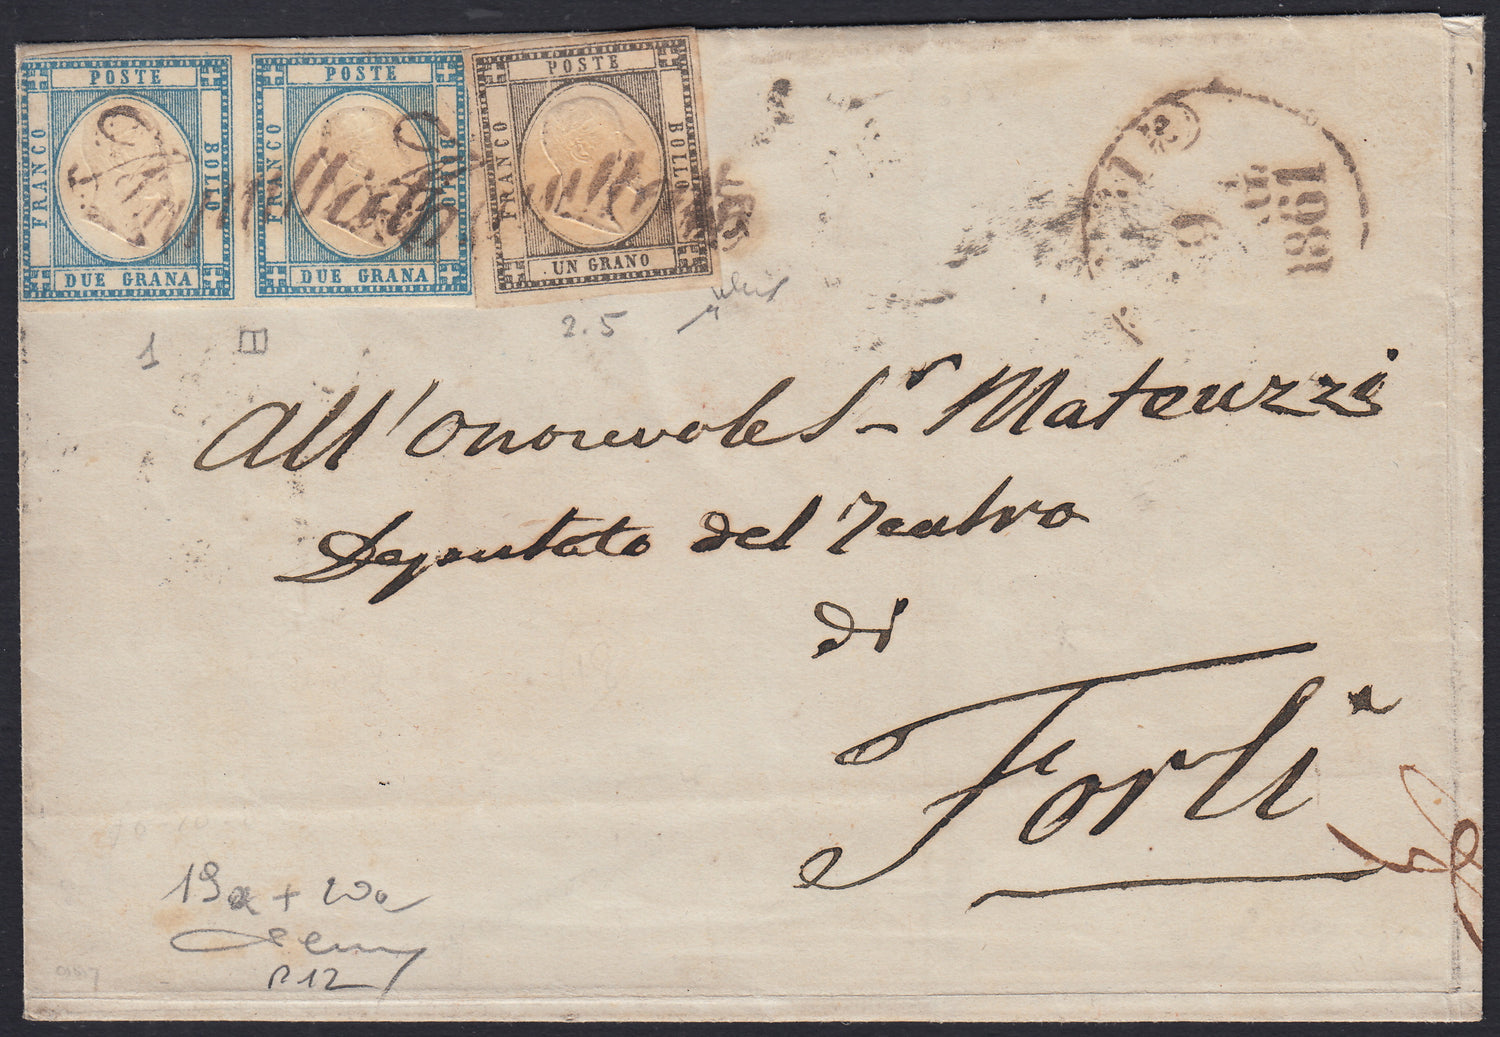 POSTE
FRANCO
BOLLO
DUE GRANA
POSTE
FRANCO
BOLLO
DUE GRANA
POSTE
FRANCO
BOLLO
UN GRANO
Annullato
9
1861
1
II
2.5
All'Onorevole S.r Mateuzzi
Deputato del Teatro
di
Forlì
19a + 20a
R12